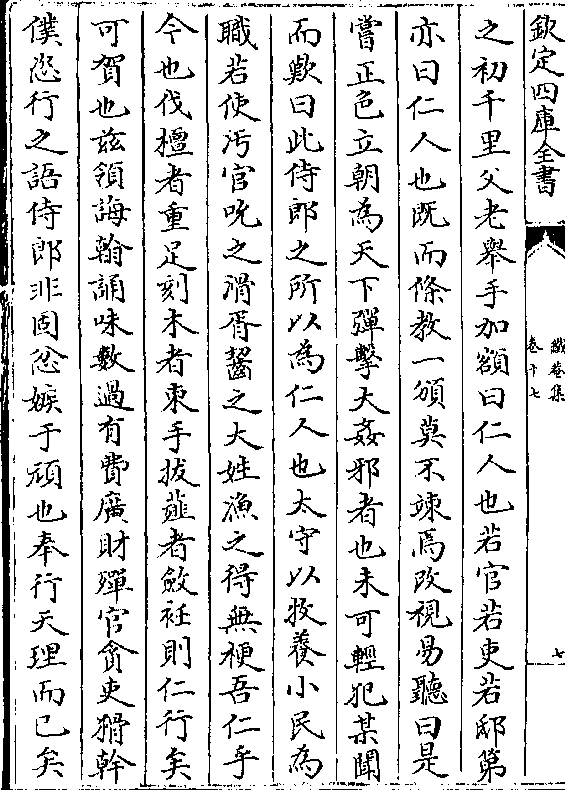 欽定四庫全書
鐵菴集
卷十七
七
之初千里父老舉手加額曰仁人也若官若吏若邸第
亦曰仁人也既而條教一頒莫不竦焉改視易聽曰是
嘗正色立朝為天下彈擊大姦邪者也未可輕犯某聞
而歎曰此侍郎之所以為仁人也太守以牧養小民為
職若使汚官吮之滑胥齧之大姓漁之得無梗吾仁乎
今也伐檀者重足刻木者束手拔薤者斂衽則仁行矣
可賀也兹領誨翰誦味數過有費廣財殫官貪吏猾幹
僕恣行之語侍郎非固忿嫉于頑也奉行天理而已矣